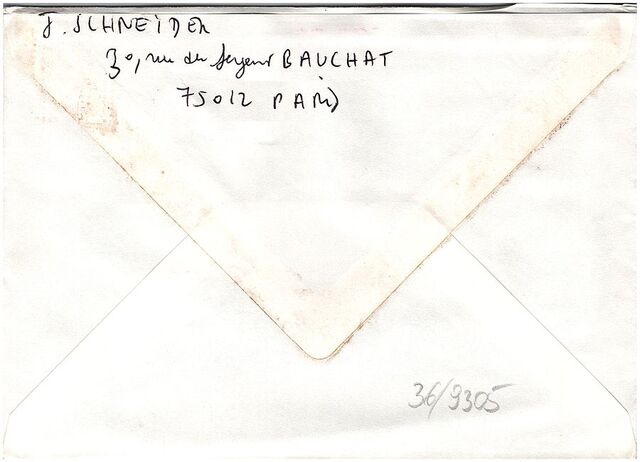 J. SCHNEIDER
30, rue du Sergent BAUCHAT
75012 PARIS
36/9305